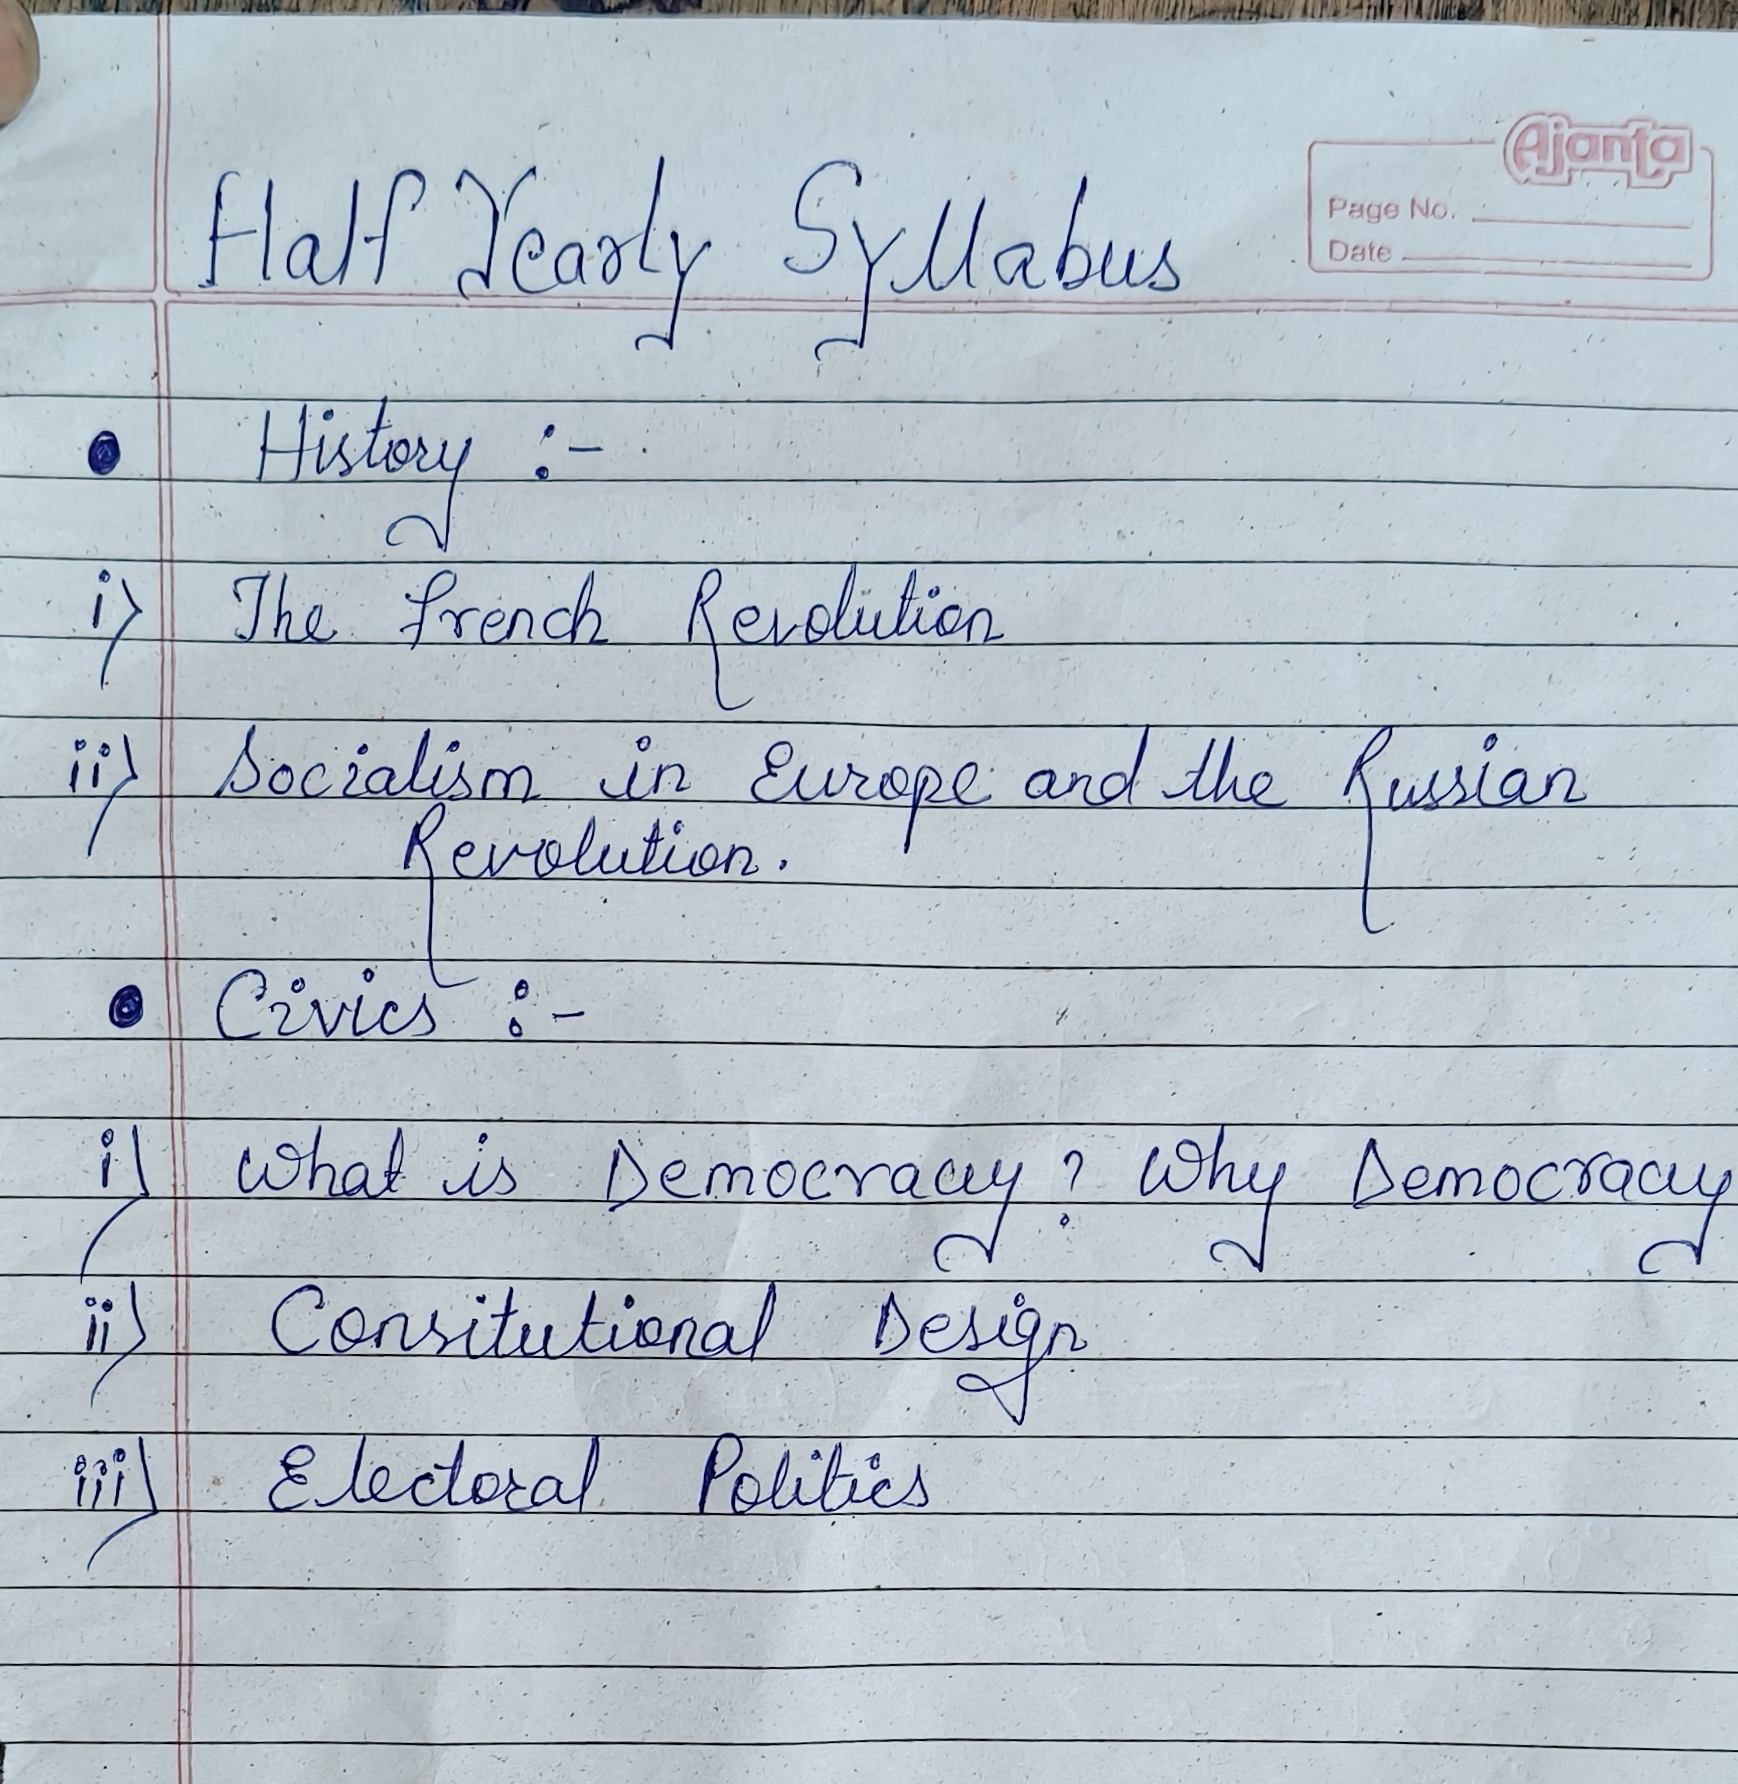 Ajanta
Page No.
Date
Half Yearly Syllabus
• History :-
i) The French Revolution
ii) Socialism in Europe and the Russian
Revolution.
• Civics :-
i) What is Democracy? Why Democracy
ii) Consitutional Design
iii) Electoral Politics